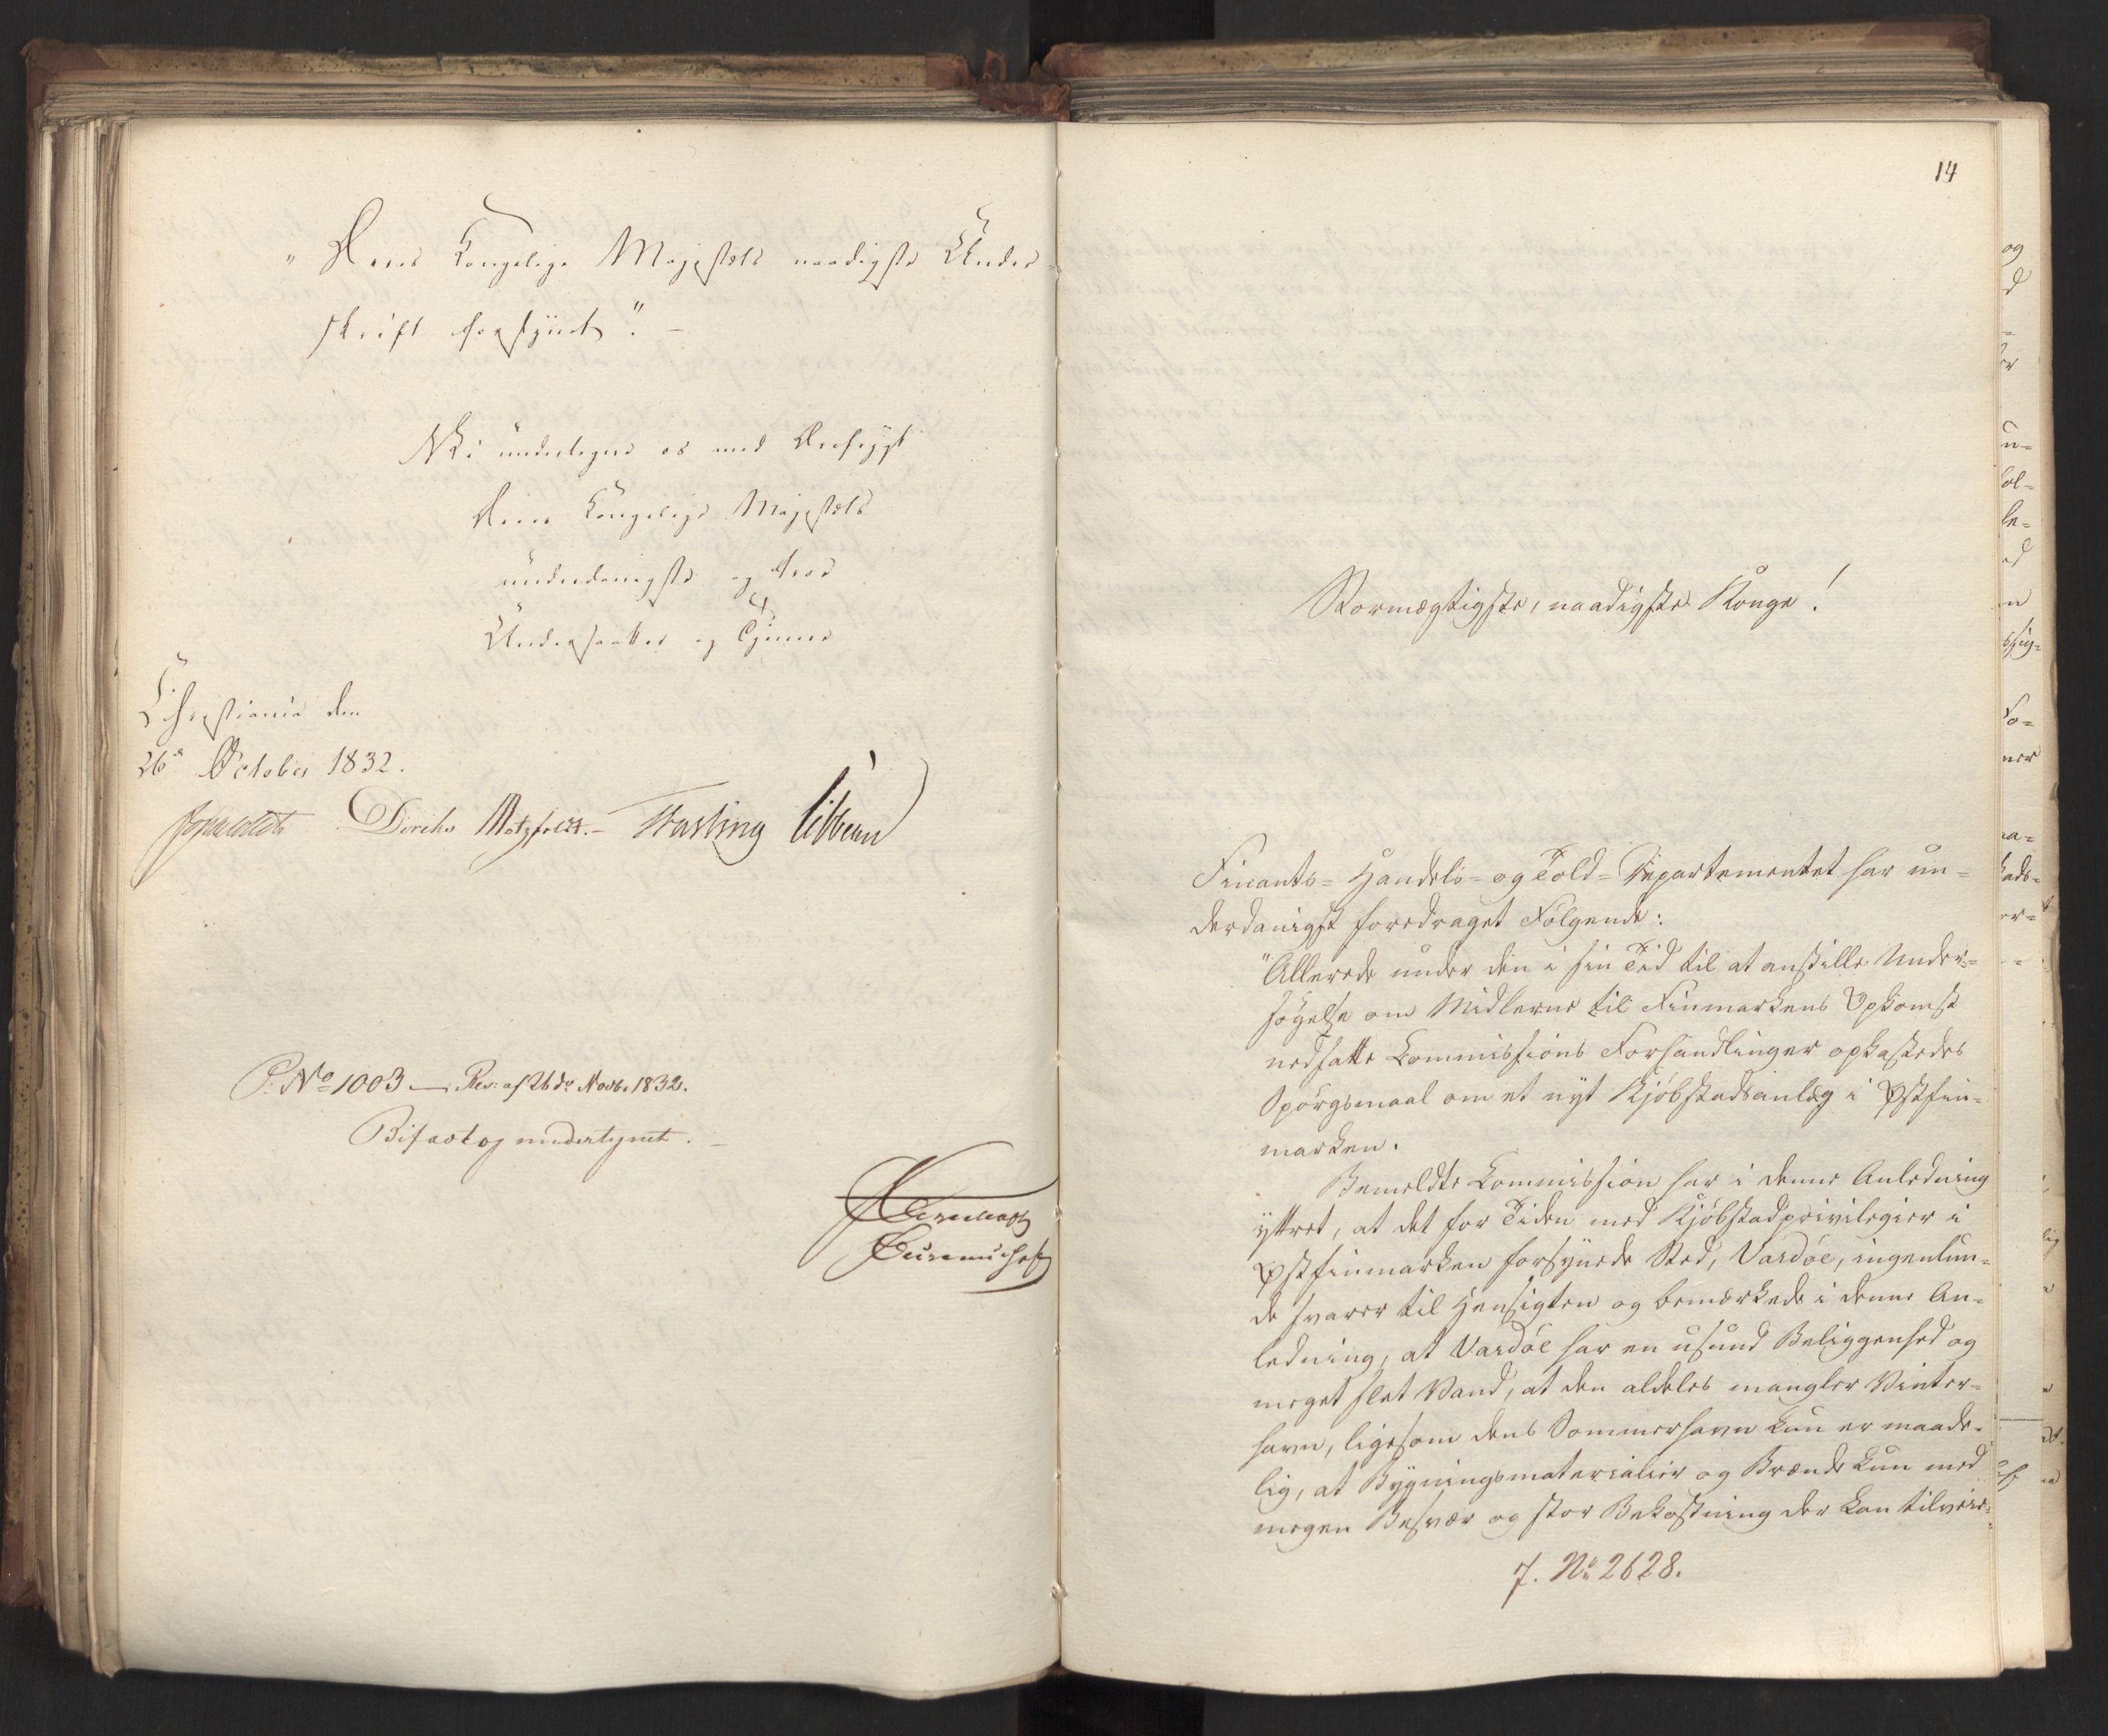 "Deres Kongelige Majestæts naadigste Under-
skrift forsynet". –
Vi undertegne os med Ærefrygt
Deres Kongelige Majestæts
underdanigste og troe
Undersaatter og Tjenere
Christiania den
26de October 1832.
Diriks Motzfeldt. – Fasting Vibe
P: No 1003 — Res: af 26de Novbr 1832.
Bifaldt og undertegnet. –
14
Stormægtigste, naadigste Konge!
Finants- Handels- og Told-Departementet har un-
derdanigst foredraget Følgende:
"Allerede under den i sin Tid til at anstille Under-
søgelse om Midlerne til Finmarkens Opkomst
nedsatte Commissions Forhandlinger opkastedes
Spørgsmaal om et nyt Kjøbstadsanlæg i Østfin-
marken.
Bemeldte Commission har i denne Anledning
yttret, at det for Tiden med Kjøbstadprivilegier i
Østfinmarken forsynede Sted, Vardøe, ingenlun-
de svarer til Hensigten og bemærkede i denne An-
ledning, at Vardøe har en usund Beliggenhed og
meget slet Vand, at den aldeles mangler Vinter-
havn, ligesom dens Sommerhavn kun er maade-
lig, at Bygningsmaterialier og Brænde kun med
megen Besvær og stor Bekostning der kan tilveie-
7. No 2628.